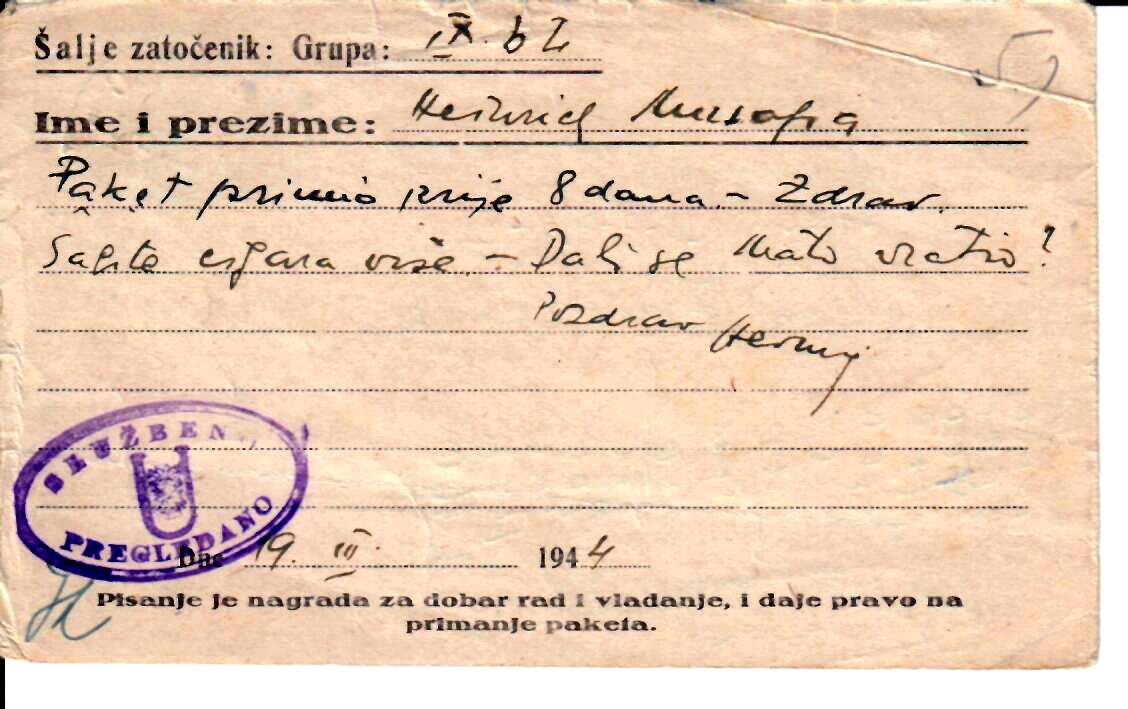 Šalje zatočenik: Grupa: IX. b I
Ime i prezime: Heinrich Musafia
Paket primio prije 8 dana. – Zdrav.
Šaljite cigara više. – Dali se Mato vratio?
Pozdrav
SLUŽBENO
U
PREGLEDANO
Dne 19. III. 1944
Pisanje je nagrada za dobar rad i vladanje, i daje pravo na
primanje paketa.